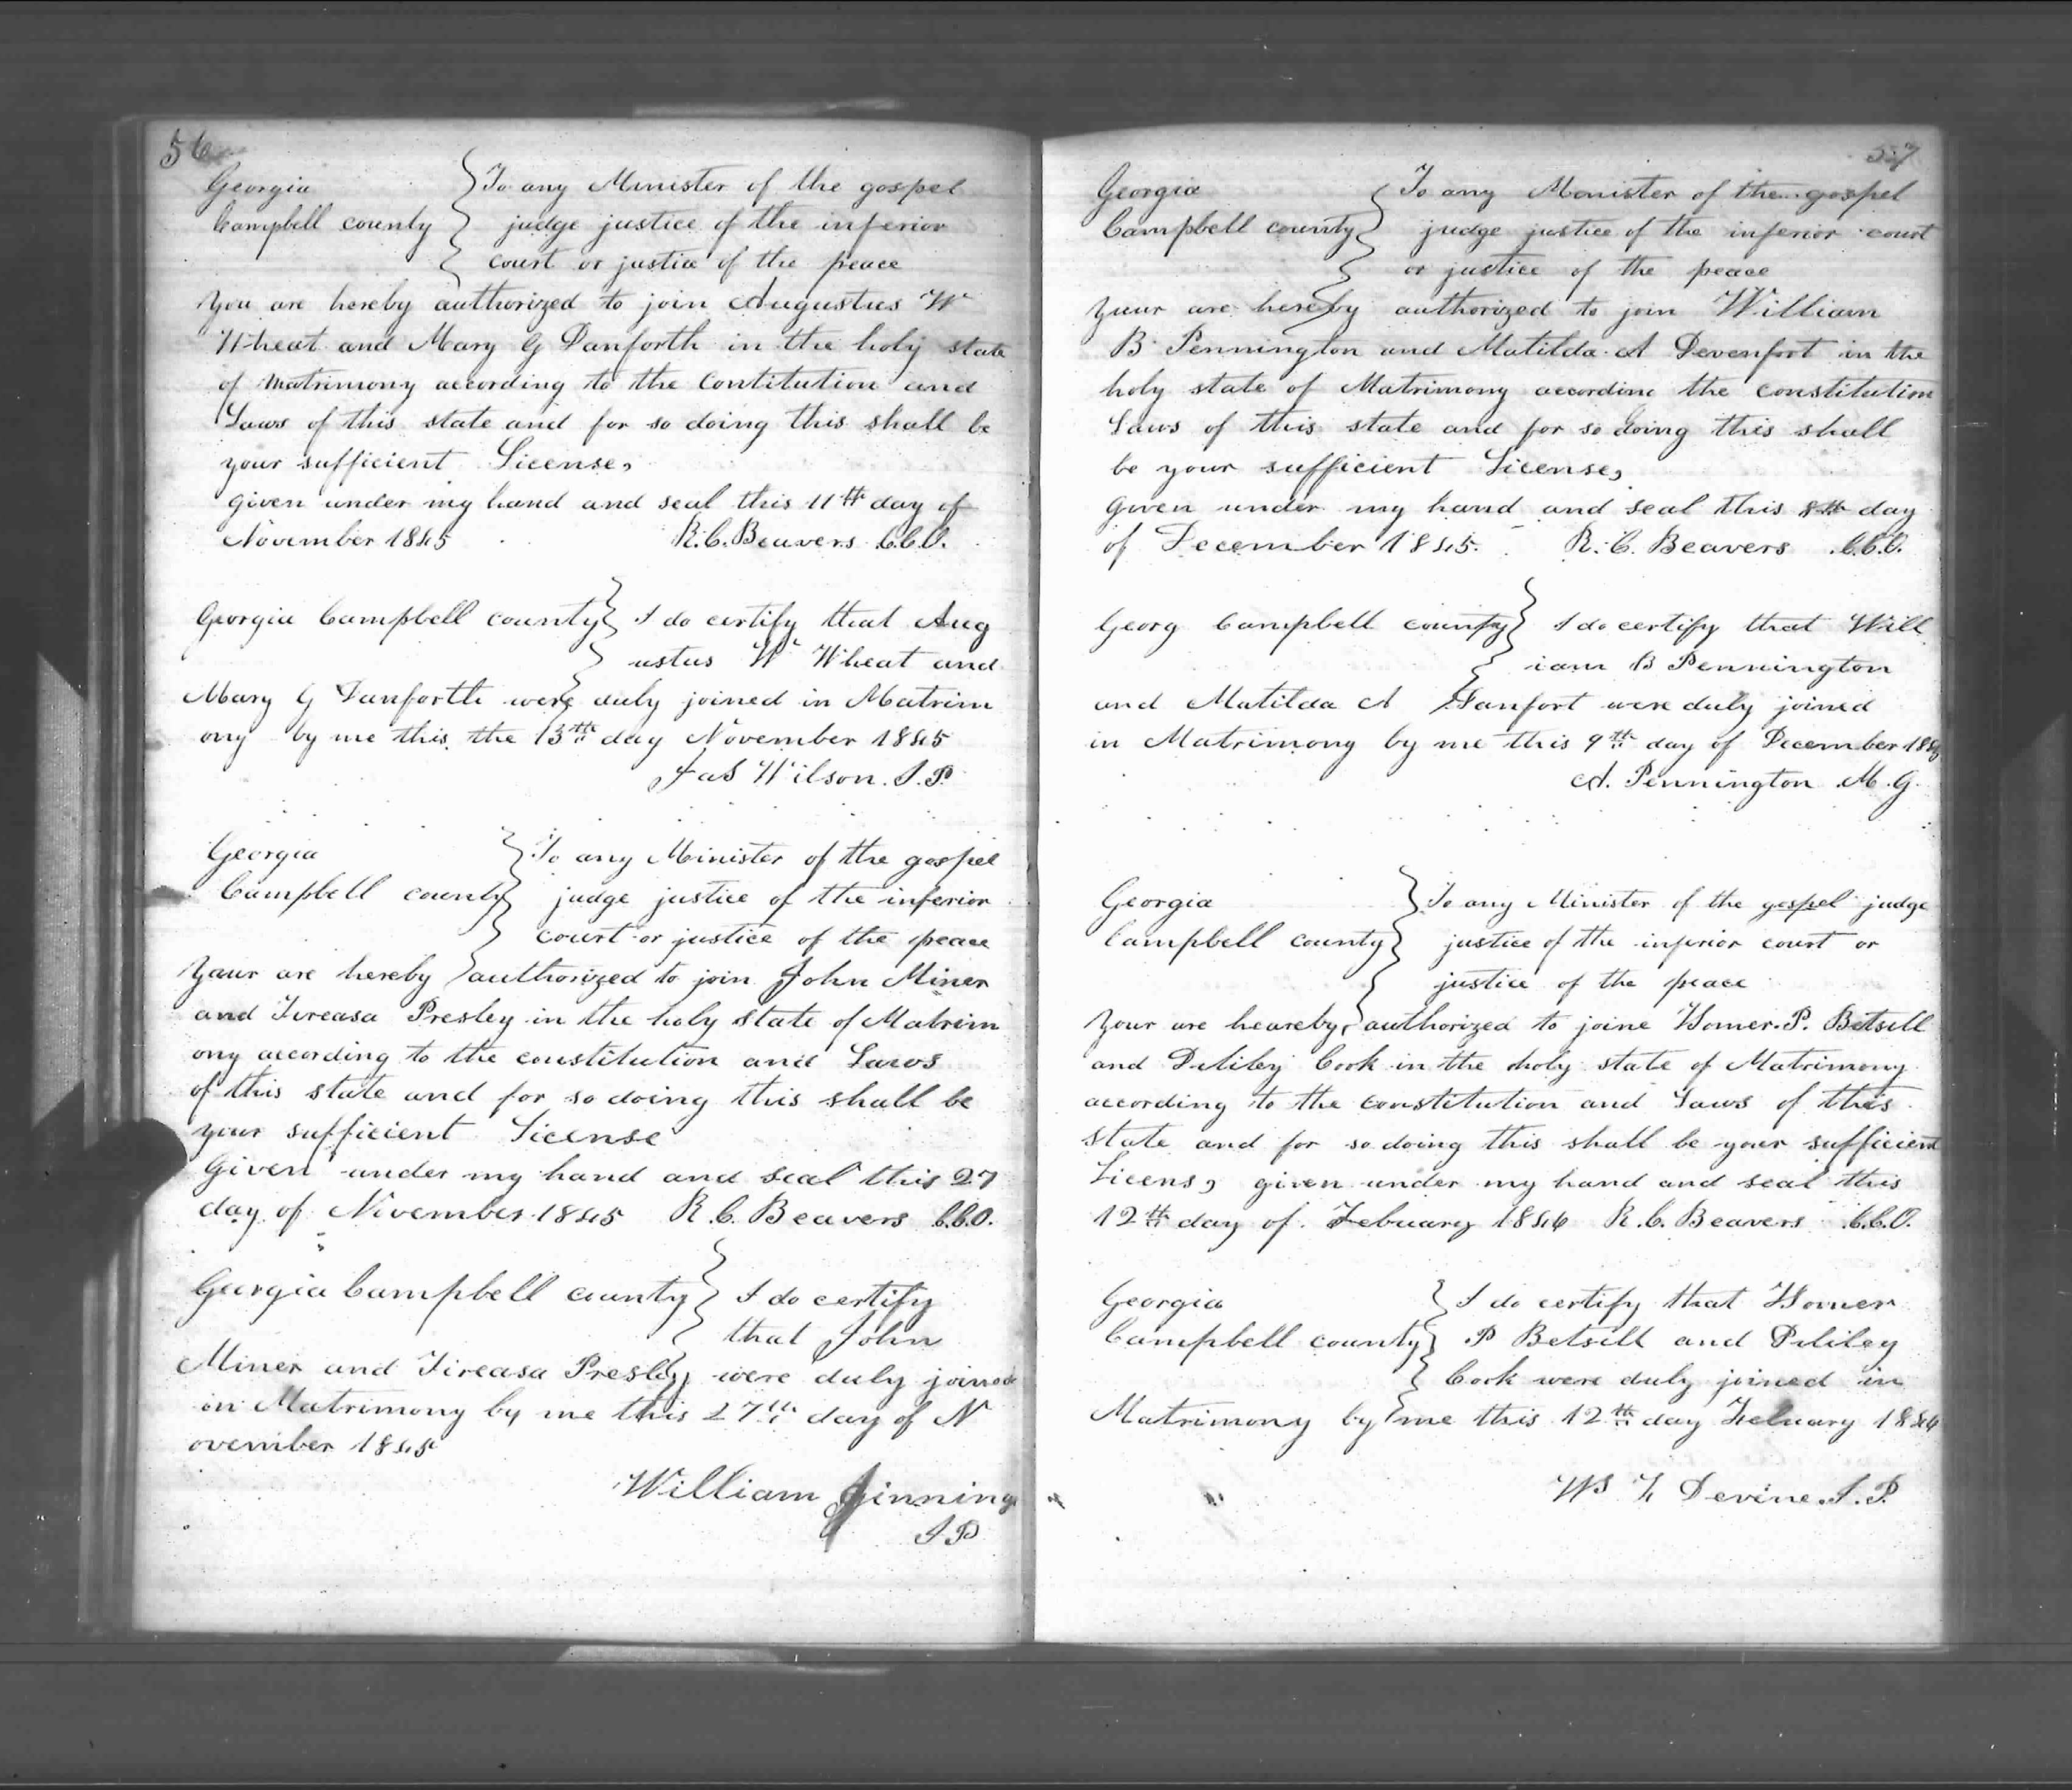 56
Georgia To any Minister of the gospel
Campbell county judge justice of the inferior
court or justice of the peace
You are hereby authorized to join Augustus W
Wheat and Mary G Danforth in the holy state
of matrimony according to the Contitution and
Laws of this state and for so doing this shall be
your sufficient License,
given under my hand and seal this 11th day of
November 1845 R. C. Beavers C.C.O.
Georgia Campbell county I do certify that Aug
ustus W Wheat and
Mary G Danforth were duly joined in Matrim
ony by me this the 13th day November 1845
Jas Wilson. J.P.
Georgia To any Minister of the gospel
Campbell county judge justice of the inferior
court or justice of the peace
Your are hereby authorized to join John Miner
and Tireasa Presley in the holy state of Matrim
ony according to the constitution and Laws
of this state and for so doing this shall be
your sufficient License
Given under my hand and seal this 27
day of November 1845 R. C. Beavers C.C.O.
Georgia Campbell county I do certify
that John
Miner and Tireasa Presley were duly joined
in Matrimony by me this 27th day of N
ovember 1845
William Jinning
J P
57
Georgia To any Minister of the gospel
Campbell county judge justice of the inferior court
or justice of the peace
Your are hereby authorized to join William
B Pennington and Matilda A Devenfort in the
holy state of Matrimony according the constitution
Laws of this state and for so doing this shall
be your sufficient License,
given under my hand and seal this 8th day
of December 1845. R. C. Beavers C.C.O.
Georg Campbell county I do certify that Will
iam B Pennington
and Matilda A Danfort were duly joined
in Matrimony by me this 9th day of December
A. Pennington M. G.
Georgia To any Minister of the gospel judge
Campbell county justice of the inferior court or
justice of the peace
Your are heareby authorized to joine Homer. P. Betsill
and Cook in the holy state of Matrimony
according to the constitution and Laws of this
state and for so doing this shall be your sufficient
Licens, given under my hand and seal this
12th day of Febuary 1846 R. C. Beavers C.C.O.
Georgia I do certify that Homer
Campbell county P Betsill and
Cook were duly joined in
Matrimony by me this 12th day Febuary 1846
Devine. J. P.